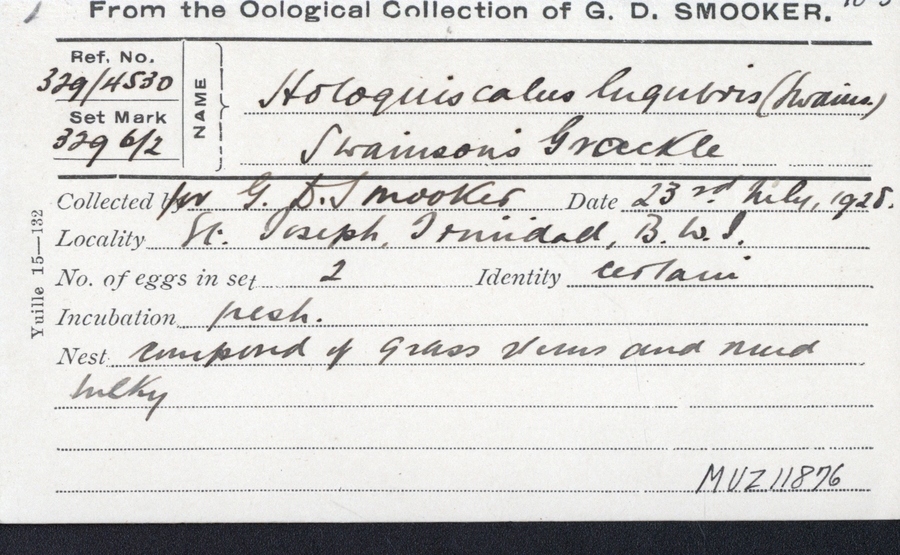 From the Oological Collection of G. D. SMOOKER.
Ref. No.
329/4530
Set Mark
329 6/2
NAME
Holoquiscalus lugubris (Swains.)
Swainson's Grackle
Collected by for G. D. Smooker Date 23rd July, 1928.
Locality St. Joseph, Trinidad, B.W.I.
No. of eggs in set 2 Identity certain
Incubation fresh.
Nest composed of grass stems and mud
bulky
MUZ 11876
Yuille 15—132